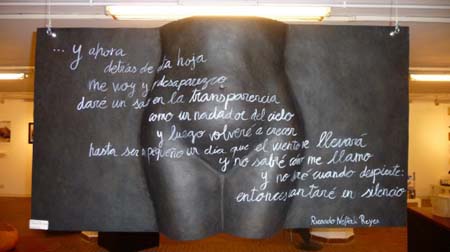 ... y ahora
detrás de esta hoja
me voy y desaparezco
daré un salto en la transparencia
como un nadador del cielo
y luego volveré a crecer
hasta ser pequeño un día que el viento me llevará
y no sabré cómo me llamo
y no seré cuando despierte:
entonces cantaré en silencio
Ricardo Neftalí Reyes